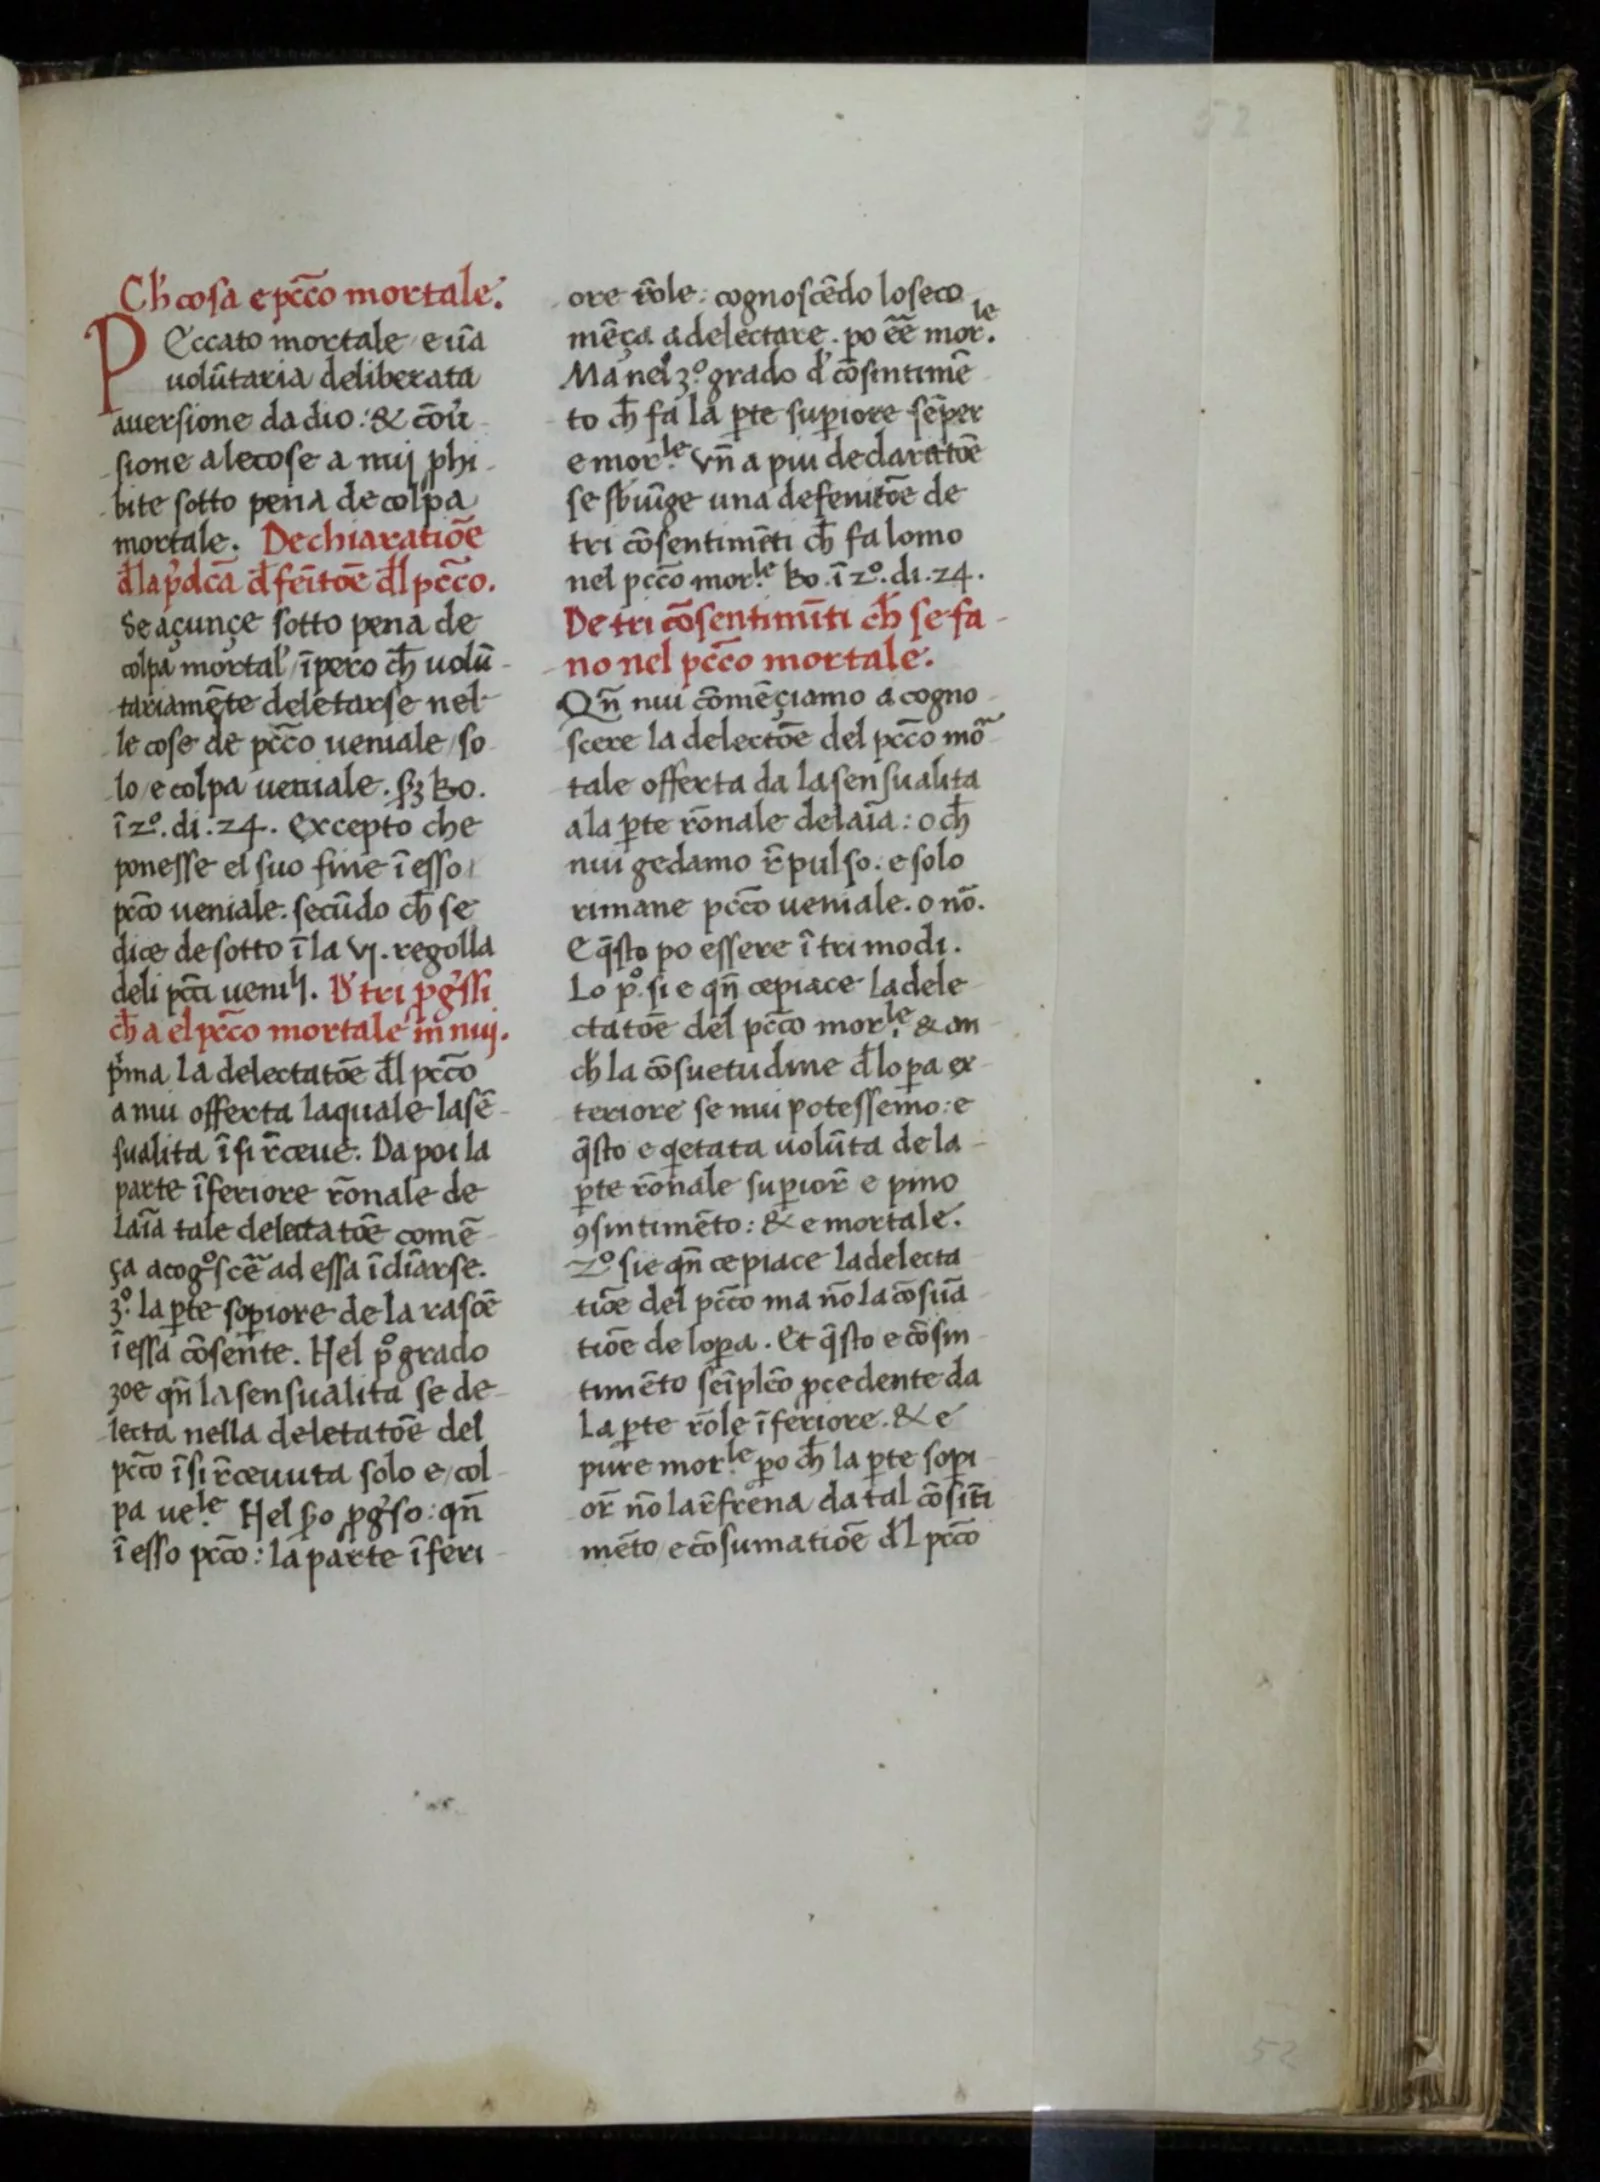 52
Ch̄ cosa e pc̄co mortale.
PEccato mortale e ūa
uolūtaria deliberata
auersione da dio: & cōu̓
sione a le cose a nuj ꝓhi
bite sotto pena de colpa
mortale. Dechiaratiōe
d̄la p̓dc̄a d̄feītōe d̄l pc̄co.
Se açunçe sotto pena de
colpa mortal̓ īpero ch̄ uolū
tariamēte deletarse nel
le cose de pc̄co ueniale / so
lo / e colpa ueniale. ẜꝫ bo.
ī 2º. di. 24. Excepto che
ponesse el suo fine ī esso
pc̄co ueniale. secūdo ch̄ se
dice de sotto ī la vj. regolla
deli pc̄ci ueniłj. D̓ tri ꝓg̓ssi
ch̄ a el pc̄co mortale in nuj.
p̓ma la delectatōe d̄l pc̄co
a nui offerta la quale la sē
sualita ī si r̄ceue. Da poi la
parte īferiore rōnale de
laīa tale delectatōe comē
ça a cogºscēr̄ ad essa īclīarse.
3º. la ꝑte soꝑiore de la rasōe
ī essa cōsente. Nel pº grado
zoe qn̄ la sensualita se de
lecta nella deletatōe del
pc̄co ī si r̄ceuuta solo e / col
pa ueˡᵉ. Nel ẜo ꝓg̓so: qn̄
ī esso pc̄co: la parte īferi
ore rōle: cognoscēdo lo se co
mēça a delectare. po ēe morˡᵉ.
Ma nel 3º. grado d̓ cōsintimē
to ch̄ fa la ꝑte suꝑiore sēper
e morˡᵉ. Vn̄ a piu declaratōe
se sb̓iūge una defenitōe de
tri cōsentimēti ch̄ fa lomo
nel pc̄co morˡᵉ. bo. ī 2º. di. 24.
De tri cōsentimīti ch̄ se fa
no nel pc̄co mortale.
Qn̄ nui cōmēçiamo a cogno
scere la delectōe del pc̄co mōr
tale offerta da la sensualita
a la ꝑte rōnale de laīa: o ch̄
nui gedamo r̄pulso: e solo
rimane pc̄co ueniale. o nō.
E q̄sto po essere ī tri modi.
Lo pº. si e qn̄ ce piace la dele
ctatōe del pc̄co morˡᵉ. & an
ch̓ la cōsuetudine d̄ lopa ex
teriore se nui potessemo: e
q̄sto e q̄etata uolūta de la
ꝑte rōnale suꝑior̄ e pino
ꝯsintimēto: & e mortale.
2º si e qn̄ ce piace la delecta
tiōe del pc̄co ma nō la cōsūa
tiōe de lopa. Et q̄sto e cōsin
timēto seīplēo ꝓcedente da
la ꝑte rōle īferiore. & e
pure morˡᵉ. po ch̄ la ꝑte soꝑi
or̄ nō la r̄frena da tal cōsīti
mēto / e cōsumatiōe d̓l pc̄co
52